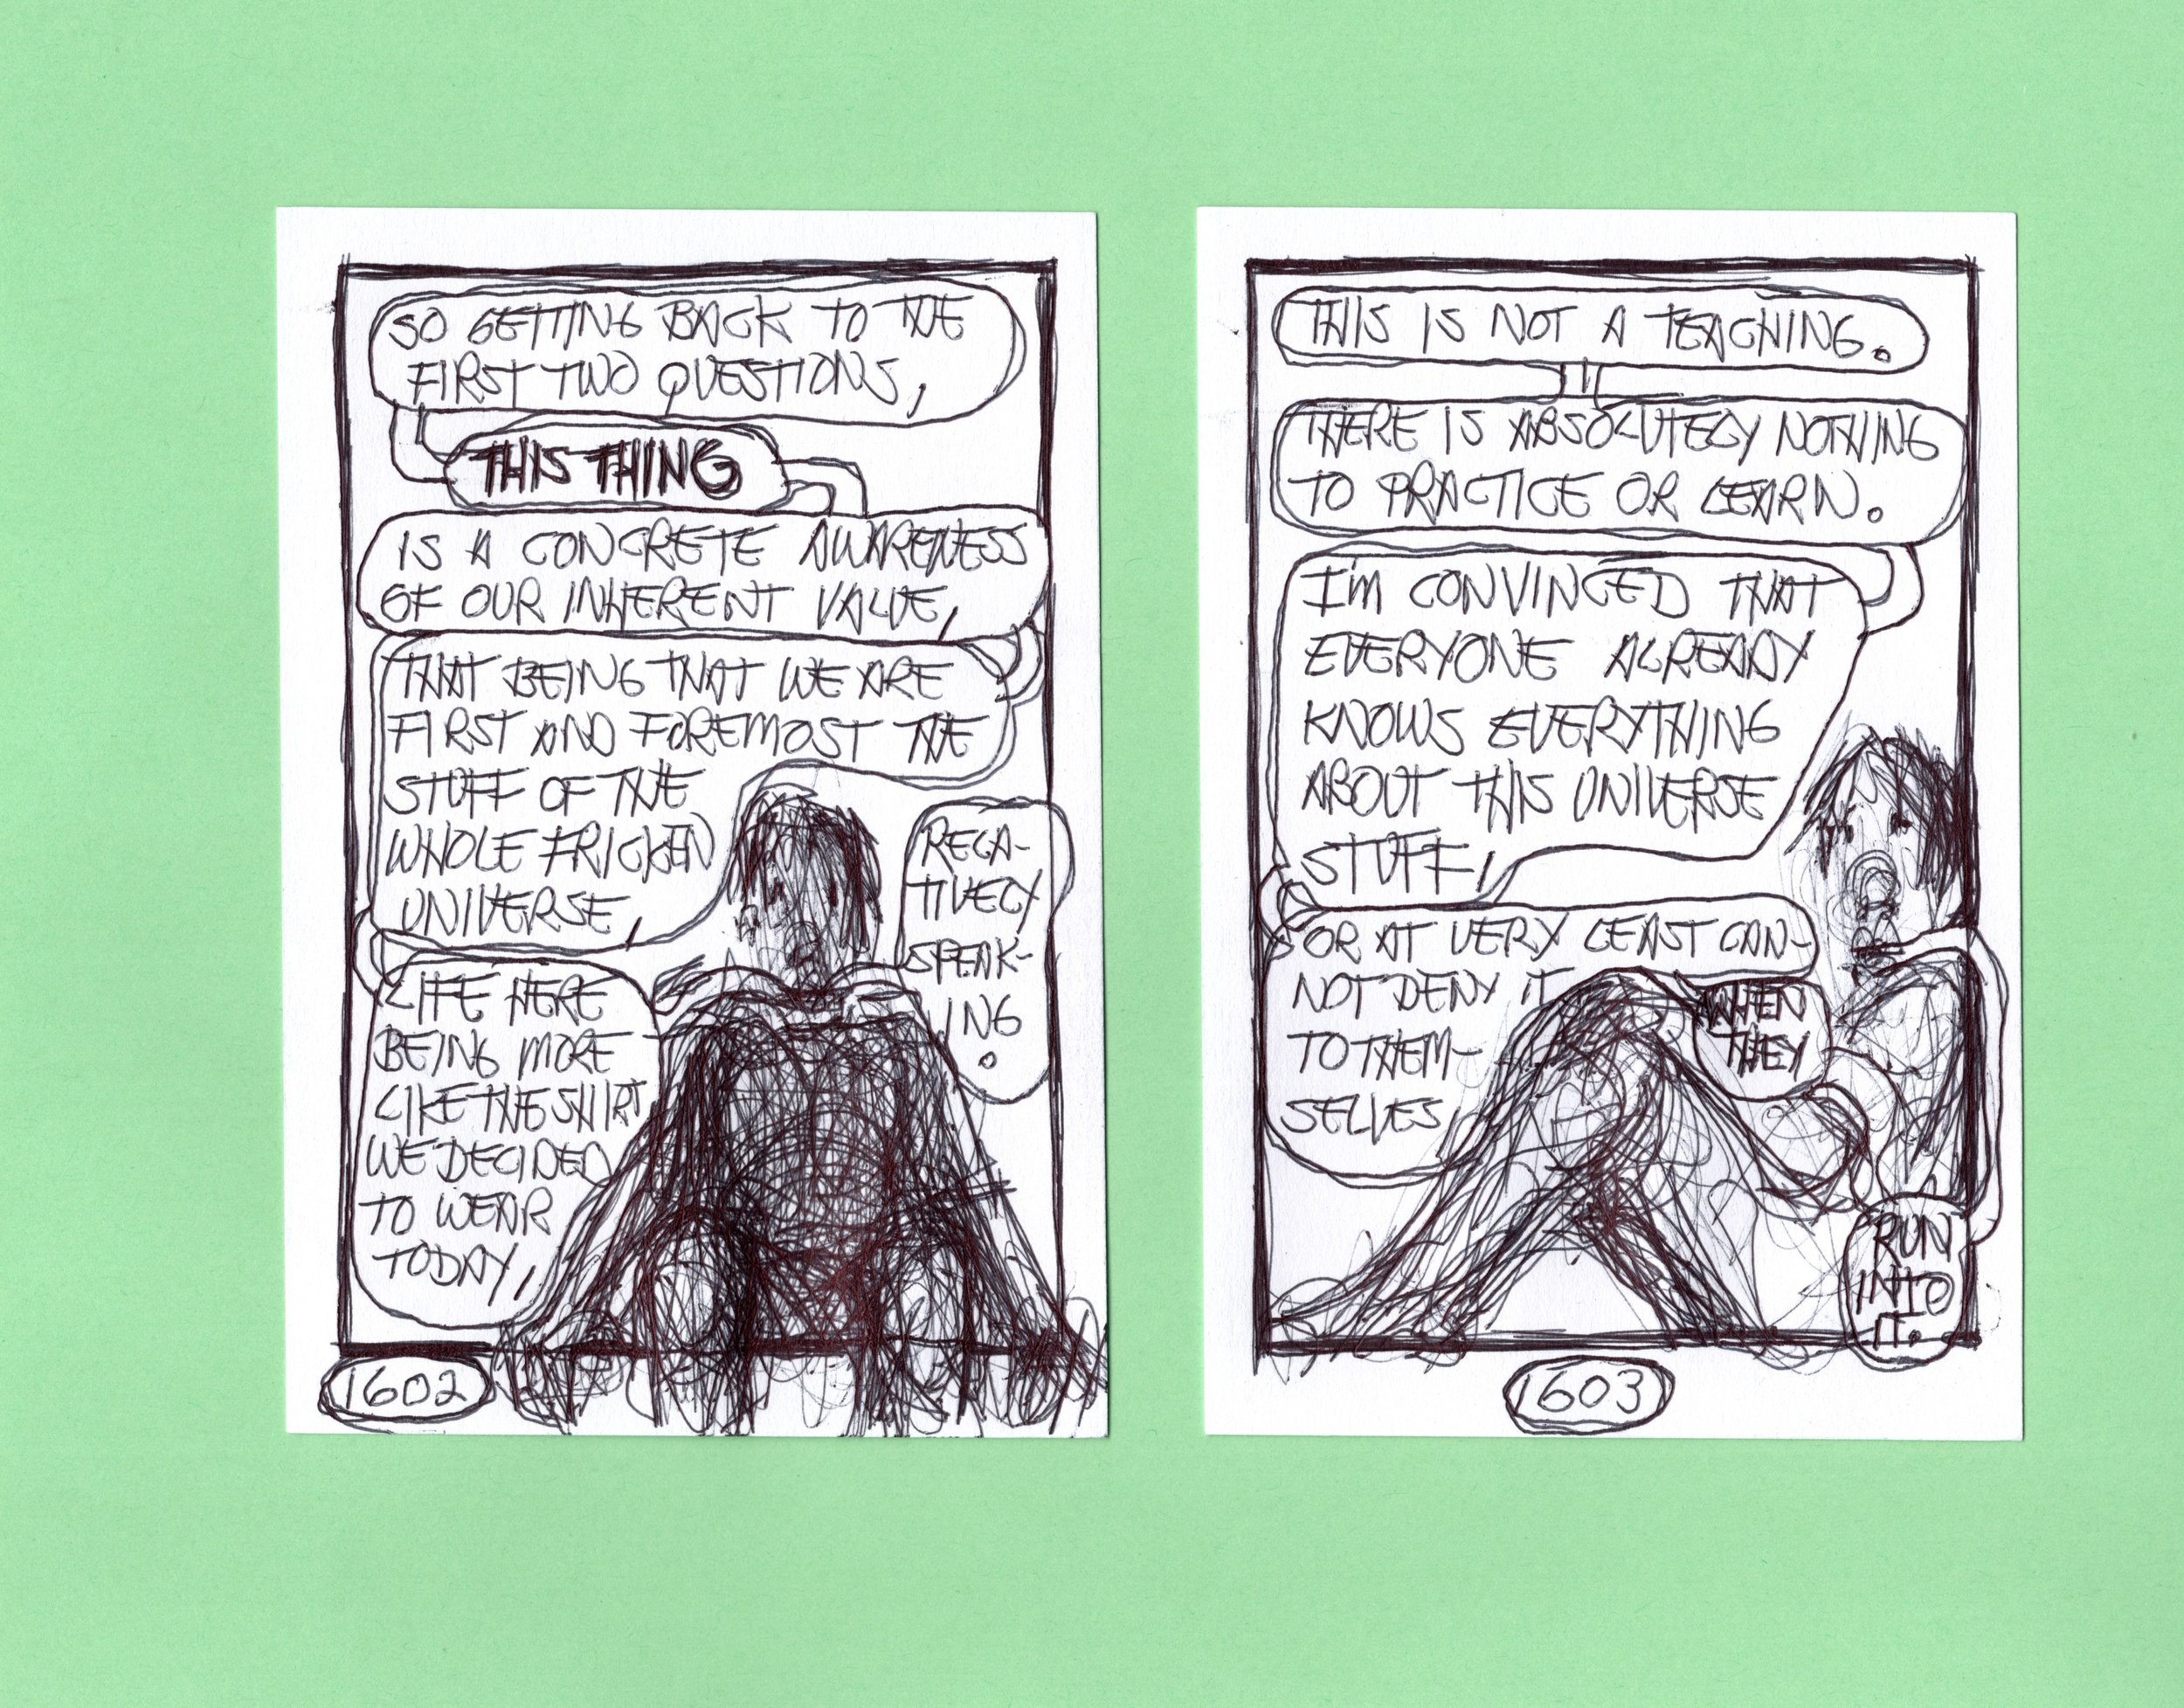 SO GETTING BACK TO THE
FIRST TWO QUESTIONS,
THIS THING
IS A CONCRETE AWARENESS
OF OUR INHERENT VALUE,
THAT BEING THAT WE ARE
FIRST AND FOREMOST THE
STUFF OF THE
WHOLE FRICKEN
UNIVERSE,
LIFE HERE
BEING MORE
LIKE THE SHIRT
WE DECIDED
TO WEAR
TODAY,
RELA-
TIVELY
SPEAK-
ING
.
1602
THIS IS NOT A TEACHING.
THERE IS ABSOLUTELY NOTHING
TO PRACTICE OR LEARN.
I'M CONVINCED THAT
EVERYONE ALREADY
KNOWS EVERYTHING
ABOUT THIS UNIVERSE
STUFF,
OR AT VERY LEAST CAN-
NOT DENY IT
TO THEM-
SELVES,
WHEN
THEY
RUN
INTO
IT.
1603